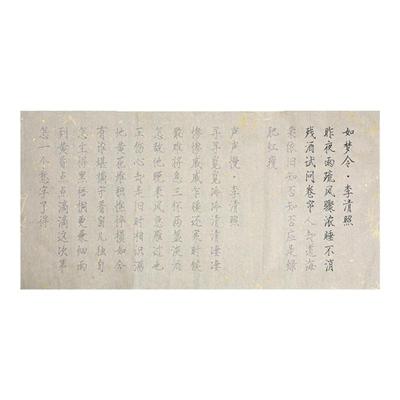 如梦令·李清照
昨夜雨疏风骤浓睡不消
残酒试问卷帘人却道海
棠依旧知否知否应是绿
肥红瘦
声声慢·李清照
寻寻觅觅冷冷清清凄凄
惨惨戚戚乍暖还寒时候
最难将息三杯两盏淡酒
怎敌他晚来风急雁过也
正伤心却是旧时相识满
地黄花堆积憔悴损如今
有谁堪摘守着窗儿独自
怎生得黑梧桐更兼细雨
到黄昏点点滴滴这次第
怎一个愁字了得